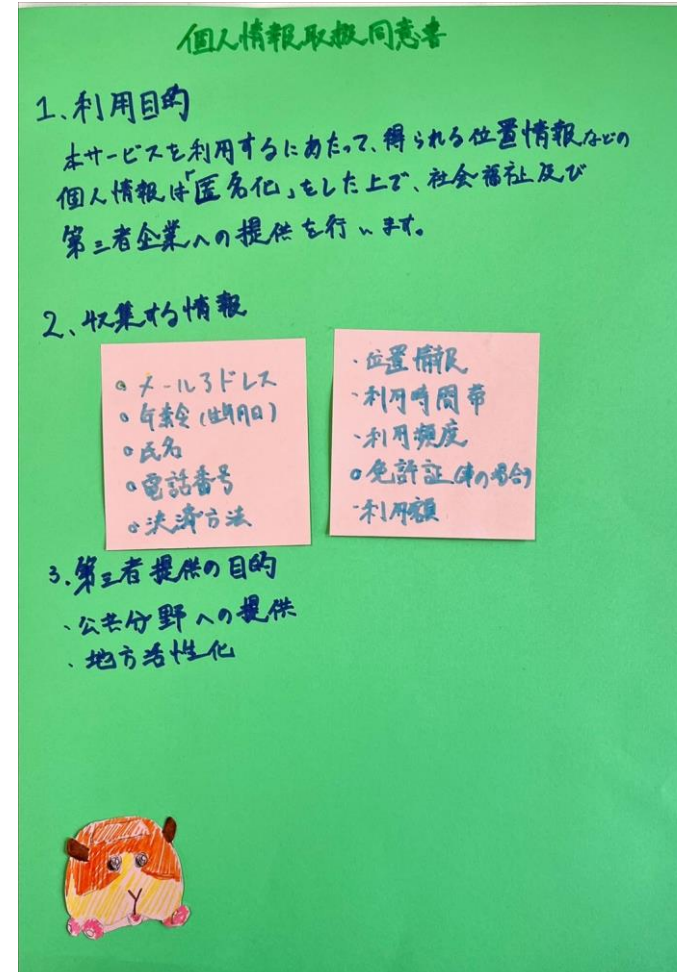 個人情報取扱同意書
1、利用目的
本サービスを利用するにあたって、得られる位置情報などの
個人情報は「匿名化」をした上で、社会福祉及び
第三者企業への提供を行います。
2、収集する情報
。メールアドレス
。年齢(生年月日)
。氏名
。電話番号
。決済方法
・位置情報
・利用時間帯
・利用頻度
。免許証(車の場合)
・利用額
3、第三者提供の目的
・公共分野への提供
・地方活性化